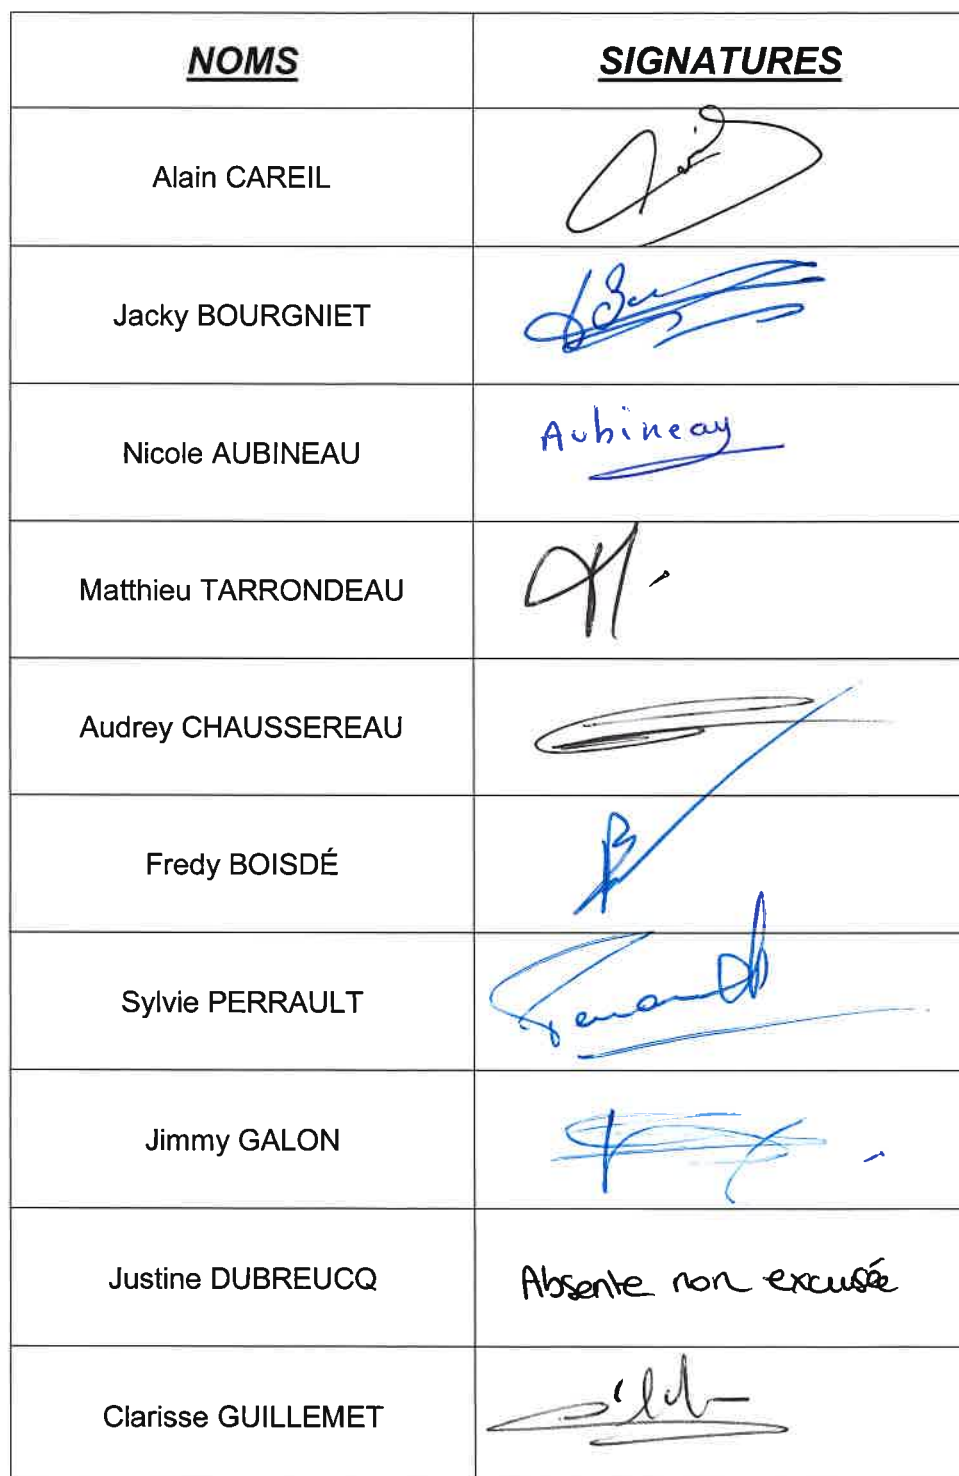 NOMS SIGNATURES
Alain CAREIL
Jacky BOURGNIET
Nicole AUBINEAU Aubineau
Matthieu TARRONDEAU
Audrey CHAUSSEREAU
Fredy BOISDÉ
Sylvie PERRAULT
Jimmy GALON
Justine DUBREUCQ Absente non excusée
Clarisse GUILLEMET